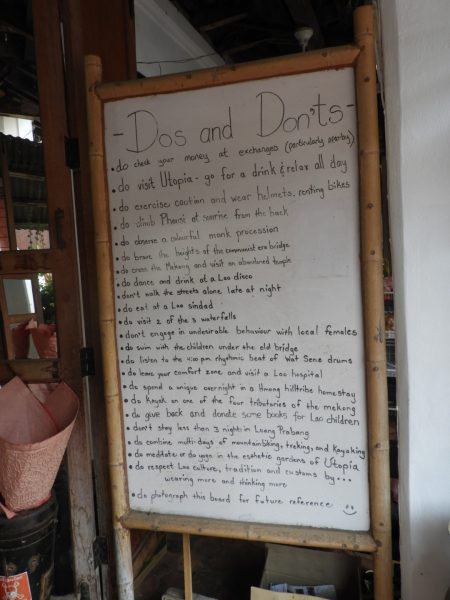 - Dos and Don'ts -
• do check your money at exchanges (particularly nearby)
• do visit Utopia - go for a drink & relax all day
• do exercise caution and wear helmets, renting bikes
• do climb Phousi at sunrise from the back
• do observe a colourful monk procession
• do brave the heights of the communist era bridge
• do cross the Mekong and visit an abandoned temple
• do dance and drink at a Lao disco
• don't walk the streets alone late at night
• do eat at a Lao sindad
• do visit 2 of the 3 waterfalls
• don't engage in undesirable behaviour with local females
• do swim with the children under the old bridge
• do listen to the 4:00 p.m. rhythmic beat of Wat Sene drums
• do leave your comfort zone and visit a Lao hospital
• do spend a unique overnight in a Hmong hilltribe homestay
• do Kayak on one of the four tributaries of the mekong
• do give back and donate some books for Lao children
• don't stay less than 3 night in Luang Prabang
• do combine multi-days of mountainbiking, treking, and Kayaking
• do meditate or do yoga in the esthetic gardens of Utopia
• do respect Lao culture, tradition and customs by...
wearing more and thinking more
• do photograph this board for future reference